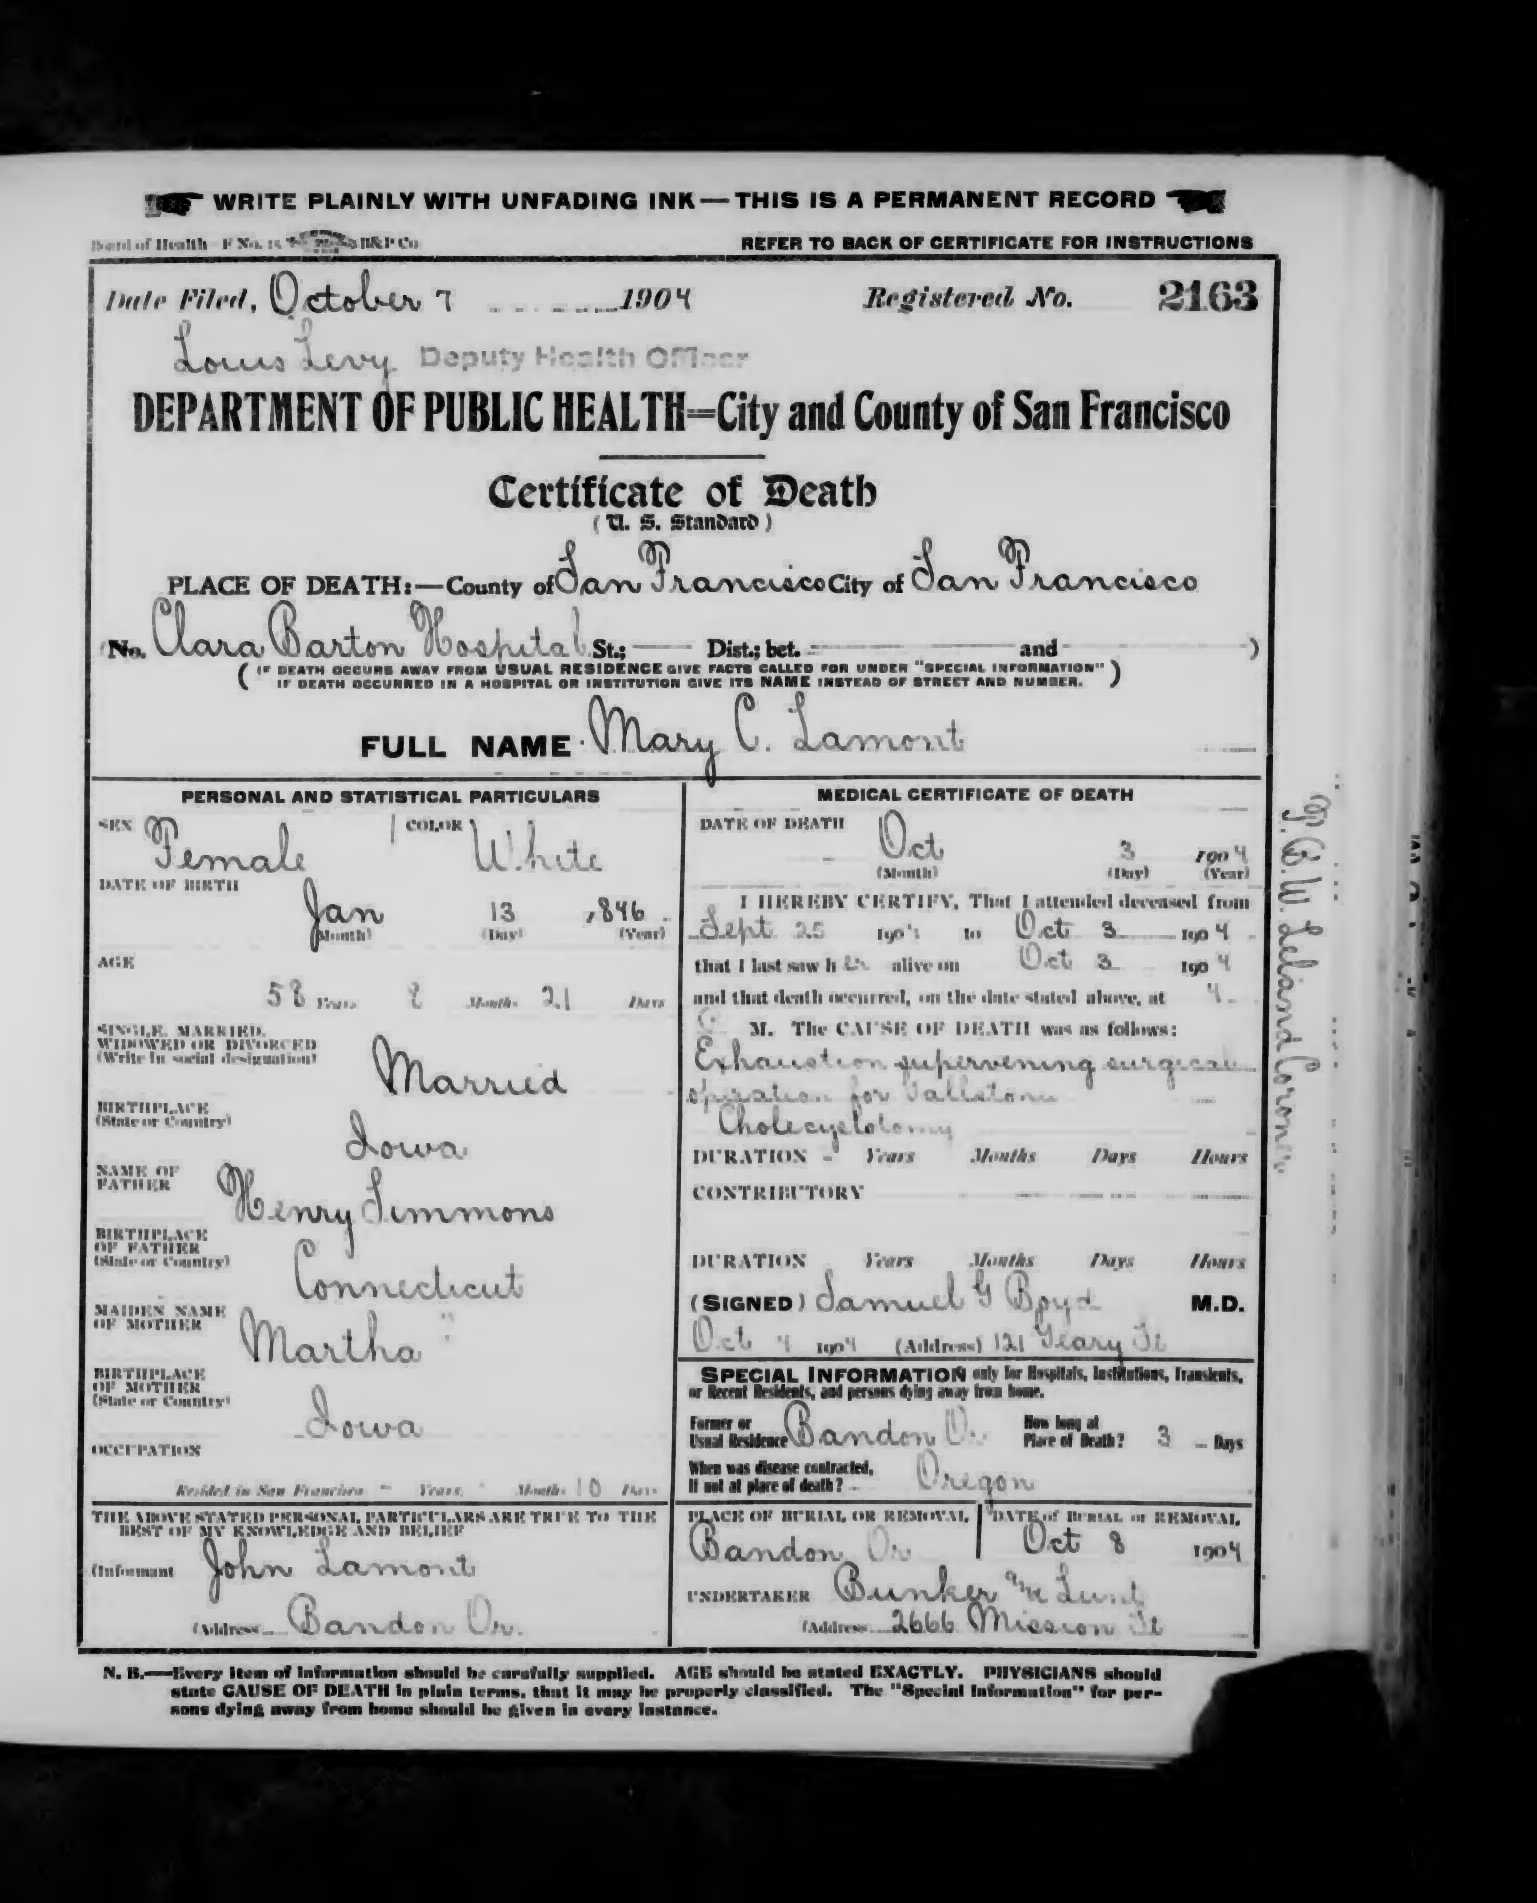 WRITE PLAINLY WITH UNFADING INK — THIS IS A PERMANENT RECORD
Board of Health F No. 15 B&P Co
REFER TO BACK OF CERTIFICATE FOR INSTRUCTIONS
Date Filed, October 7 1904 Registered No. 2163
Louis Levy Deputy Health Officer
DEPARTMENT OF PUBLIC HEALTH=City and County of San Francisco
Certificate of Death
(U. S. Standard)
PLACE OF DEATH:—County of San Francisco City of San Francisco
(No. Clara Barton Hospital St.; Dist.; bet. and )
(IF DEATH OCCURS AWAY FROM USUAL RESIDENCE GIVE FACTS CALLED FOR UNDER "SPECIAL INFORMATION"
IF DEATH OCCURRED IN A HOSPITAL OR INSTITUTION GIVE ITS NAME INSTEAD OF STREET AND NUMBER.)
FULL NAME Mary C. Lamont
PERSONAL AND STATISTICAL PARTICULARS
SEX Female COLOR White
DATE OF BIRTH
Jan 13 1846
(Month) (Day) (Year)
AGE
58 Years 8 Months 21 Days
SINGLE, MARRIED,
WIDOWED OR DIVORCED
(Write in social designation)
Married
BIRTHPLACE
(State or Country)
Iowa
NAME OF
FATHER
Henry Simmons
BIRTHPLACE
OF FATHER
(State or Country)
Connecticut
MAIDEN NAME
OF MOTHER
Martha ?
BIRTHPLACE
OF MOTHER
(State or Country)
Iowa
OCCUPATION
Resided in San Francisco - Years - Months 10 Days
THE ABOVE STATED PERSONAL PARTICULARS ARE TRUE TO THE
BEST OF MY KNOWLEDGE AND BELIEF
(Informant John Lamont
(Address Bandon Or.
MEDICAL CERTIFICATE OF DEATH
DATE OF DEATH
Oct 3 1904
(Month) (Day) (Year)
I HEREBY CERTIFY, That I attended deceased from
Sept 25 1904 to Oct 3 1904
that I last saw h er alive on Oct 3 1904
and that death occurred, on the date stated above, at 4
M. The CAUSE OF DEATH was as follows:
Exhaustion supervening surgical
operation for Gallstone
Cholecystotomy
DURATION - Years Months Days Hours
CONTRIBUTORY
DURATION Years Months Days Hours
(SIGNED) Samuel G Boyd M.D.
Oct 4 1904 (Address) 121 Geary St
SPECIAL INFORMATION only for Hospitals, Institutions, Transients,
or Recent Residents, and persons dying away from home.
Former or
Usual Residence Bandon Or
How long at
Place of Death? 3 Days
When was disease contracted,
If not at place of death? Oregon
PLACE OF BURIAL OR REMOVAL
Bandon Or
DATE of BURIAL or REMOVAL
Oct 8 1904
UNDERTAKER Bunker and Lunt
(Address 2666 Mission St
N. B.—Every item of information should be carefully supplied. AGE should be stated EXACTLY. PHYSICIANS should
state CAUSE OF DEATH in plain terms, that it may be properly classified. The "Special Information" for per-
sons dying away from home should be given in every instance.
T. B. W. Leland Coroner